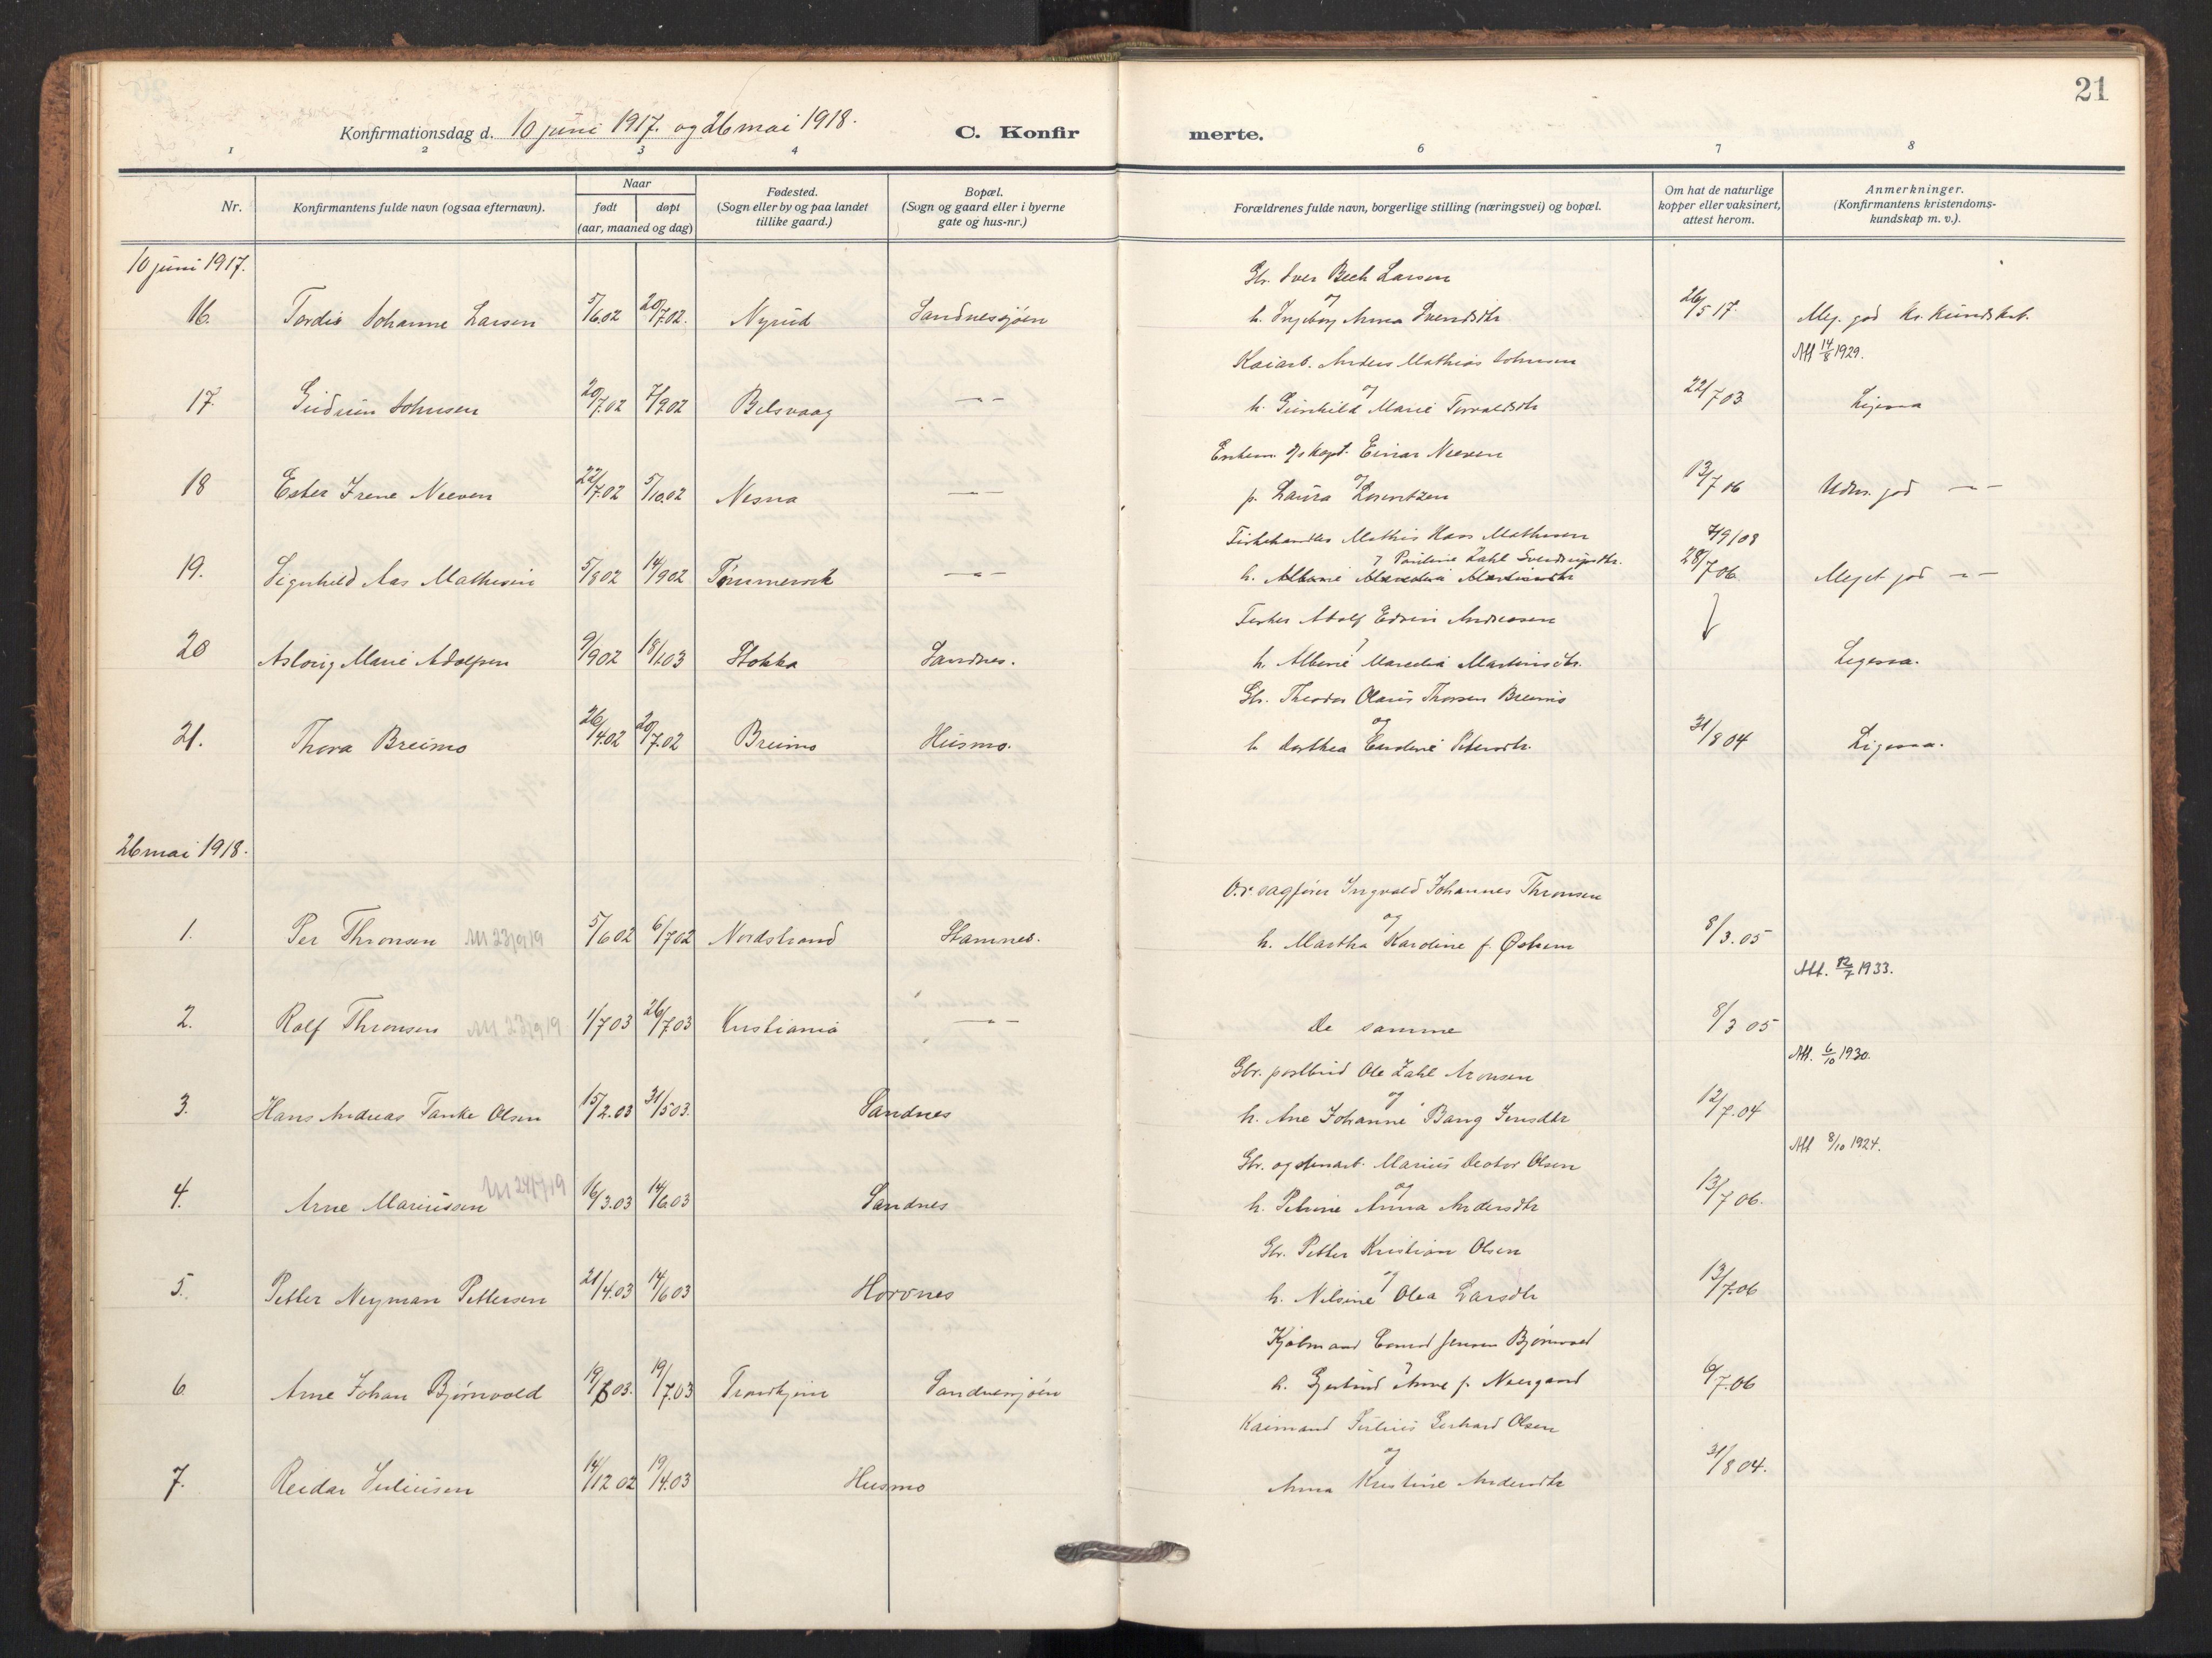 21
Konfirmationsdag d. 10 juni 1917. og 26 mai 1918.
C. Konfir
merte.
1 2 3 4 6 7 8
Nr.
Konfirmantens fulde navn (ogsaa efternavn).
Naar
født døpt
(aar, maaned og dag)
Fødested.
(Sogn eller by og paa landet
tillike gaard.)
Bopæl.
(Sogn og gaard eller i byerne
gate og hus-nr.)
Forældrenes fulde navn, borgerlige stilling (næringsvei) og bopæl.
Om hat de naturlige
kopper eller vaksinert,
attest herom.
Anmerkninger.
(Konfirmantens kristendoms-
kundskap m. v.).
10 juni 1917.
Gbr. Iver Bech Larsen
og
16. Tordis Johanne Larsen 5/6.02 20/7.02. Nyrud Sandnessjøen h. Ingeborg Anna 26/5 17. Meg. god kr. kundskab.
Att 14/8 1929.
Kaiarb. Anders Mathias Johnsen
og
17. Gudrun Johnsen 20/7.02 7/9.02 Belsvaag —"— h. Gunhild Marie 22/7 03 Ligesaa
Einar Neeven
og
18 Ester Irene Neeven 22/7.02 5/10.02 Nesna —"— f. Laura Lorentzen 13/7 06 Udm. god —"—
Mathis Hans Mathesen 7/9/08
Pauline Zahl
19. Signhild Aas Mathesen 5/8 02 14/9 02 —"— h. Albine Marselia Martinsdtr 28/7 06 Meget god —"—
Fisker Adolf Edvin Andreasen
20 Aslaug Marie Adolfsen 9/9 02 18/1.03 Stokka Sandnes. h. Albine Marselia Martinsdtr. Ligesaa.
Gbr. Theodor Olaus Thorsen Breimo
og
21. Thora Breimo 26/4.02 20/7.02 Breimo Husmo. h. Dorthea 31/8 04 Ligesaa.
26 mai 1918.
O.r. sagfører Ingvald Johannes Thronsen
og
1. Per Thronsen 23/9 19 5/6 02 6/7 02 Nordstrand Stamnes. h. Martha Karoline f. 8/3.05
Att. 12/7 1933.
2. Rolf Thronsen 23/9 19 1/7 03 26/7.03 Kristiania —"— De samme 8/3 05
Att. 6/10 1930.
Gbr. postbud Ole Zahl Aronsen
og
3. Hans Andreas Tanke Olsen 15/2.03 31/5 03. Sandnes h. Ane Johanne Bang Jensdtr 12/7.04
Att 8/10 1924.
Gbr. og Marius Olsen
og
4. Arne Mariussen 24/7 19 16/3.03 14/6.03 Sandnes h. Petrine Anna Andersdtr 13/7 06.
Gbr. Petter Kristian Olsen
og
5. Petter Neyman Pettersen 21/4.03 14/6 03 Horvnes h. Nilsine Olea Larsdtr 13/7.06
Kjøbmand Jensen Bjørnvold
6. Arne Johan Bjørnvold 03. 19/7.03 Trondhjem Sandnessjøen h. Anne f. Neergaard 6/7.06
Kaimand Julius Gerhard Olsen
og
7. Reidar Juliusen 14/12 02 19/4.03 Husmo Anna Kristine Andersdtr 31/8 04.